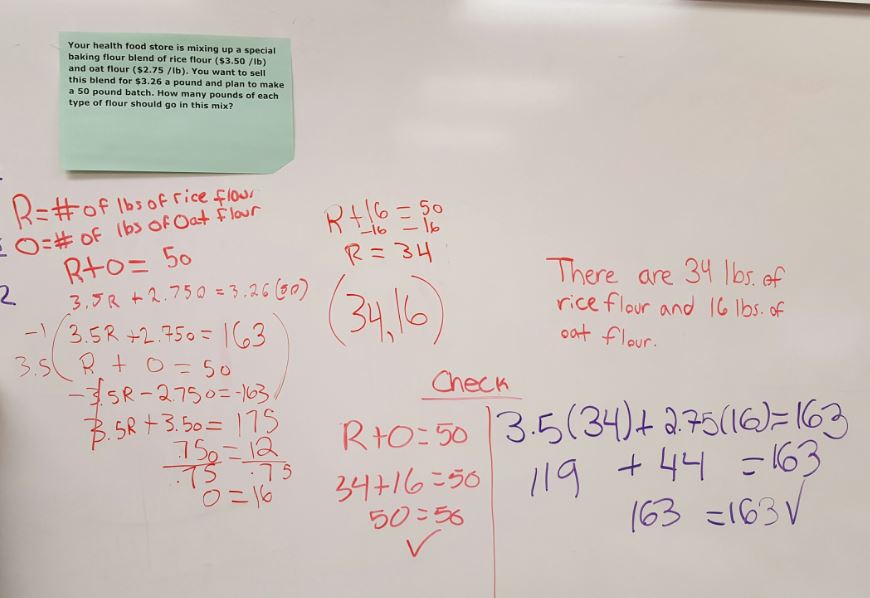 Your health food store is mixing up a special
baking flour blend of rice flour ($3.50 /lb)
and oat flour ($2.75 /lb). You want to sell
this blend for $3.26 a pound and plan to make
a 50 pound batch. How many pounds of each
type of flour should go in this mix?
R=# of lbs of rice flour
O=# of lbs of Oat flour
R+O= 50
3.5R + 2.75O = 3.26(50)
2
-1 (3.5R +2.75O = 163
3.5( R + O = 50)
-3.5R - 2.75O = -163
3.5R + 3.5O = 175
.75O = 12
.75 .75
O = 16
R+16 = 50
-16 -16
R = 34
(34,16)
There are 34 lbs. of
rice flour and 16 lbs. of
oat flour.
Check
R+O=50
34+16=50
50=50
✓
3.5(34)+2.75(16)=163
119 + 44 =163
163 =163 ✓